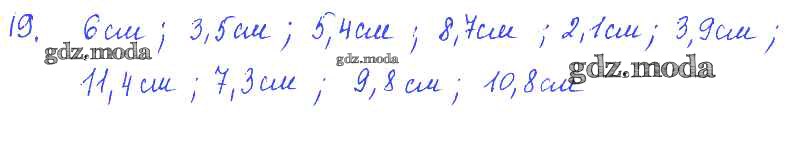 19. 6 см ; 3,5 см ; 5,4 см ; 8,7 см ; 2,1 см ; 3,9 см ;
gdz.moda gdz.moda gdz.moda
11,4 см ; 7,3 см ; 9,8 см ; 10,8 см